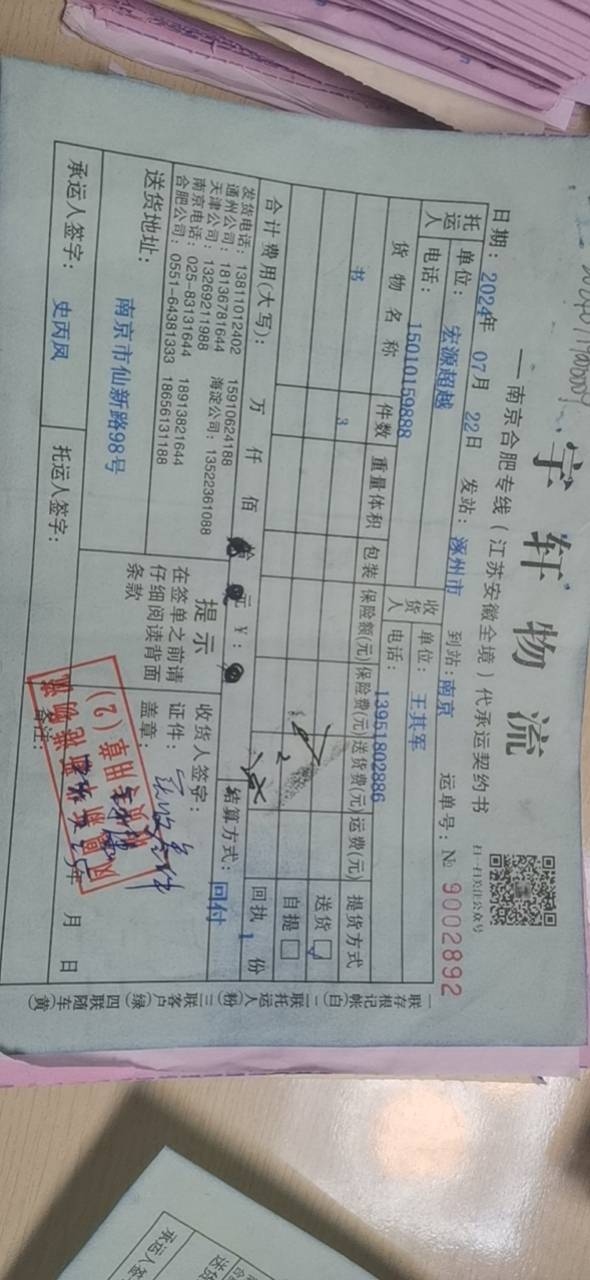 宇轩物流
—南京合肥专线(江苏安徽全境)代承运契约书
扫一扫关注公众号
日期: 2024年 07月 22日 发站: 涿州市 到站: 南京 运单号: № 9002892
托运人 单位: 宏源超越 收货人 单位: 王其军
电话: 15010159888 电话: 13951802886
货物名称 件数 重量 体积 包装 保险额(元) 保险费(元) 送货费(元) 运费(元) 提货方式
书 3 送货
自提
合计费用(大写): 万 仟 佰 元 ¥: 回执 1 份
发货电话: 13811012402 15910624188
通州公司: 18136781644 海淀公司: 13522361088
天津公司: 13269211988
南京电话: 025-83131644 18913821644
合肥公司: 0551-64381333 18656131188
结算方式: 回付
送货地址: 南京市仙新路98号
提示
在签单之前请
仔细阅读背面
条款
收货人签字:
证件:
盖章:
年 月 日
承运人签字: 史丙凤 托运人签字: 备注:
一联存根记帐(白) 二联托运人(粉) 三联客户(绿) 四联随车(黄)
(2)
承运人签